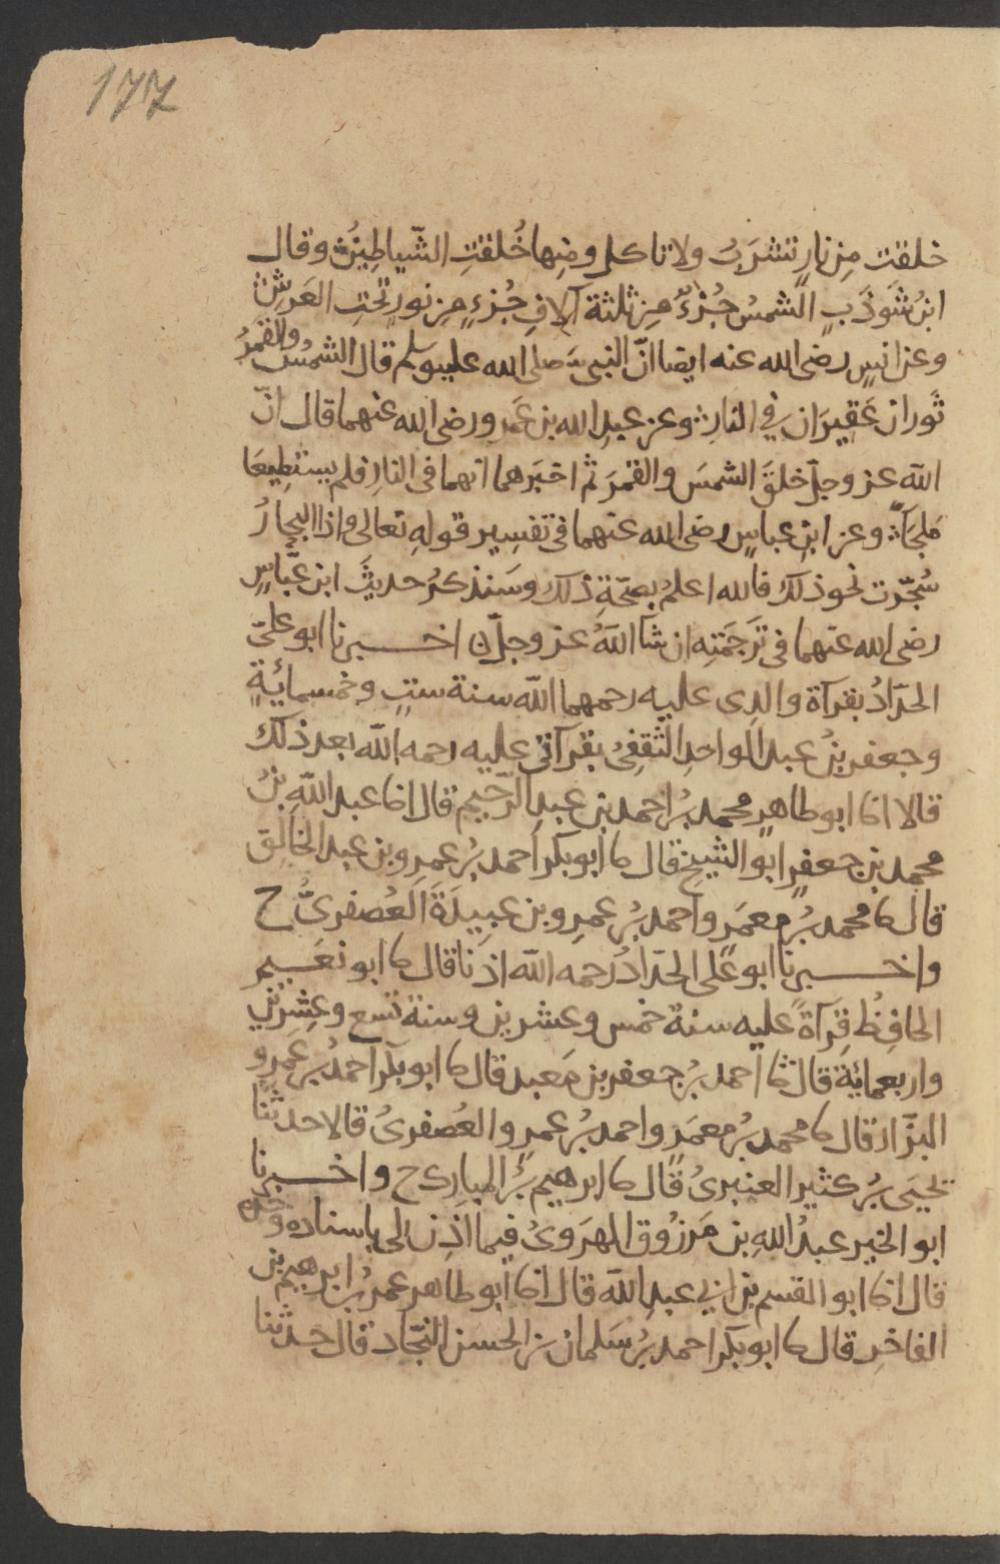 177
خلقت مِن نارٍ تشرَبُ ولا تاكل ومنِها خُلقتِ الشّياطِينُ وقال
ابنُ شَوذَبٍ الشمسُ جُزءٌ مِن ثلثة آلافِ جُزءٍ مِن نورِ تحتِ العَرشِ
وعن انسٍ رضى الله عنه ايضا انّ النبى صلى الله عليه وسلم قال الشمسُ والقمرُ
ثَوران عَقِيرَان في النارِ وعن عبدِ الله بن عَمرٍو رضى الله عنهما قال انّ
الله عز وجلّ خلقَ الشمسَ والقمرَ ثم اخبَرهما انهما فى النارِ فلم يستطِيعَا
مَلجَأً وعن ابنِ عباسٍ رضى الله عنهما فى تفسِير قولهِ تعالى واذا البحارُ
سُجّرت نحو ذلك فالله اعلمُ بصحّةِ ذلك وسَنذكرُ حديثَ ابن عبّاسٍ
رضى الله عنهما فى تَرجَمَتِه ان شآ اللهُ عز وجلّ اخبرنا ابو علىّ
الحَدّادُ بقرآة والدِى عليه رحمهما الله سنة ستٍ وخمسمائةٍ
وجعفر بنُ عبد الواحدِ الثقفِىُ بقرآتى عليه رحمه الله بعد ذلك
قالا انا ابو طاهرٍ محمد بنُ احمد بن عبدِ الرّحيم قال انا عبد اللهِ بنُ
محمد بن جعفرٍ ابو الشيخ قال نا ابو بكر احمد بنُ عمرِو بن عبد الخالِق
قال نا محمد بنُ معمَرٍ واحمد بنُ عمرِو بن عبِيدَةَ العُصفرىُّ ح
واخبرنا ابو على الحدّادُ رحمه الله اذنا قال نا ابو نعَيم
الحافِظُ قِرَآةً عليه سنة خمس وعشرين وسنة تسع وعِشرين
واربعمائة قال ثنا احمد بنُ جعفر بن مَعبد قال نا ابو بكر احمدُ بنُ عمرٍو
البزّار قال نا محمد بنُ معمَرٍ واحمد بنُ عمرٍو العُصفرىُ قالا حدثنا
يَحيَى بنُ كثير العنبرىُ قال نا ابرهيم بنُ المبارك ح واخبرنا
ابو الخير عبدُ اللهِ بن مَرزُوق الهرَوىُ فيما اذِن لى باسناده
قال انا ابو القسم بن ابي عبدِ الله قال انا ابو طاهر عمرُ بنُ ابرهيم بن
الفاخِر قال نا ابو بكر احمد بنُ سَلمان بن الحسن النجّاد قال حدثنا